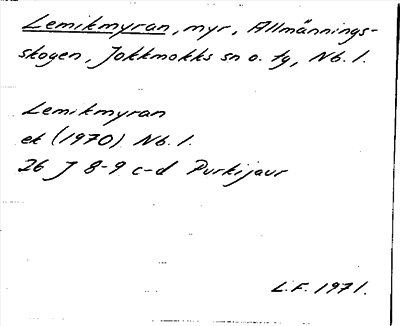 Lemikmyran, myr, Allmännings-
skogen, Jokkmokks sn o. tg, Nb. l.
Lemikmyran
ek (1970) Nb. l.
26 J 8-9 c-d Purkijaur
L.F. 1971.